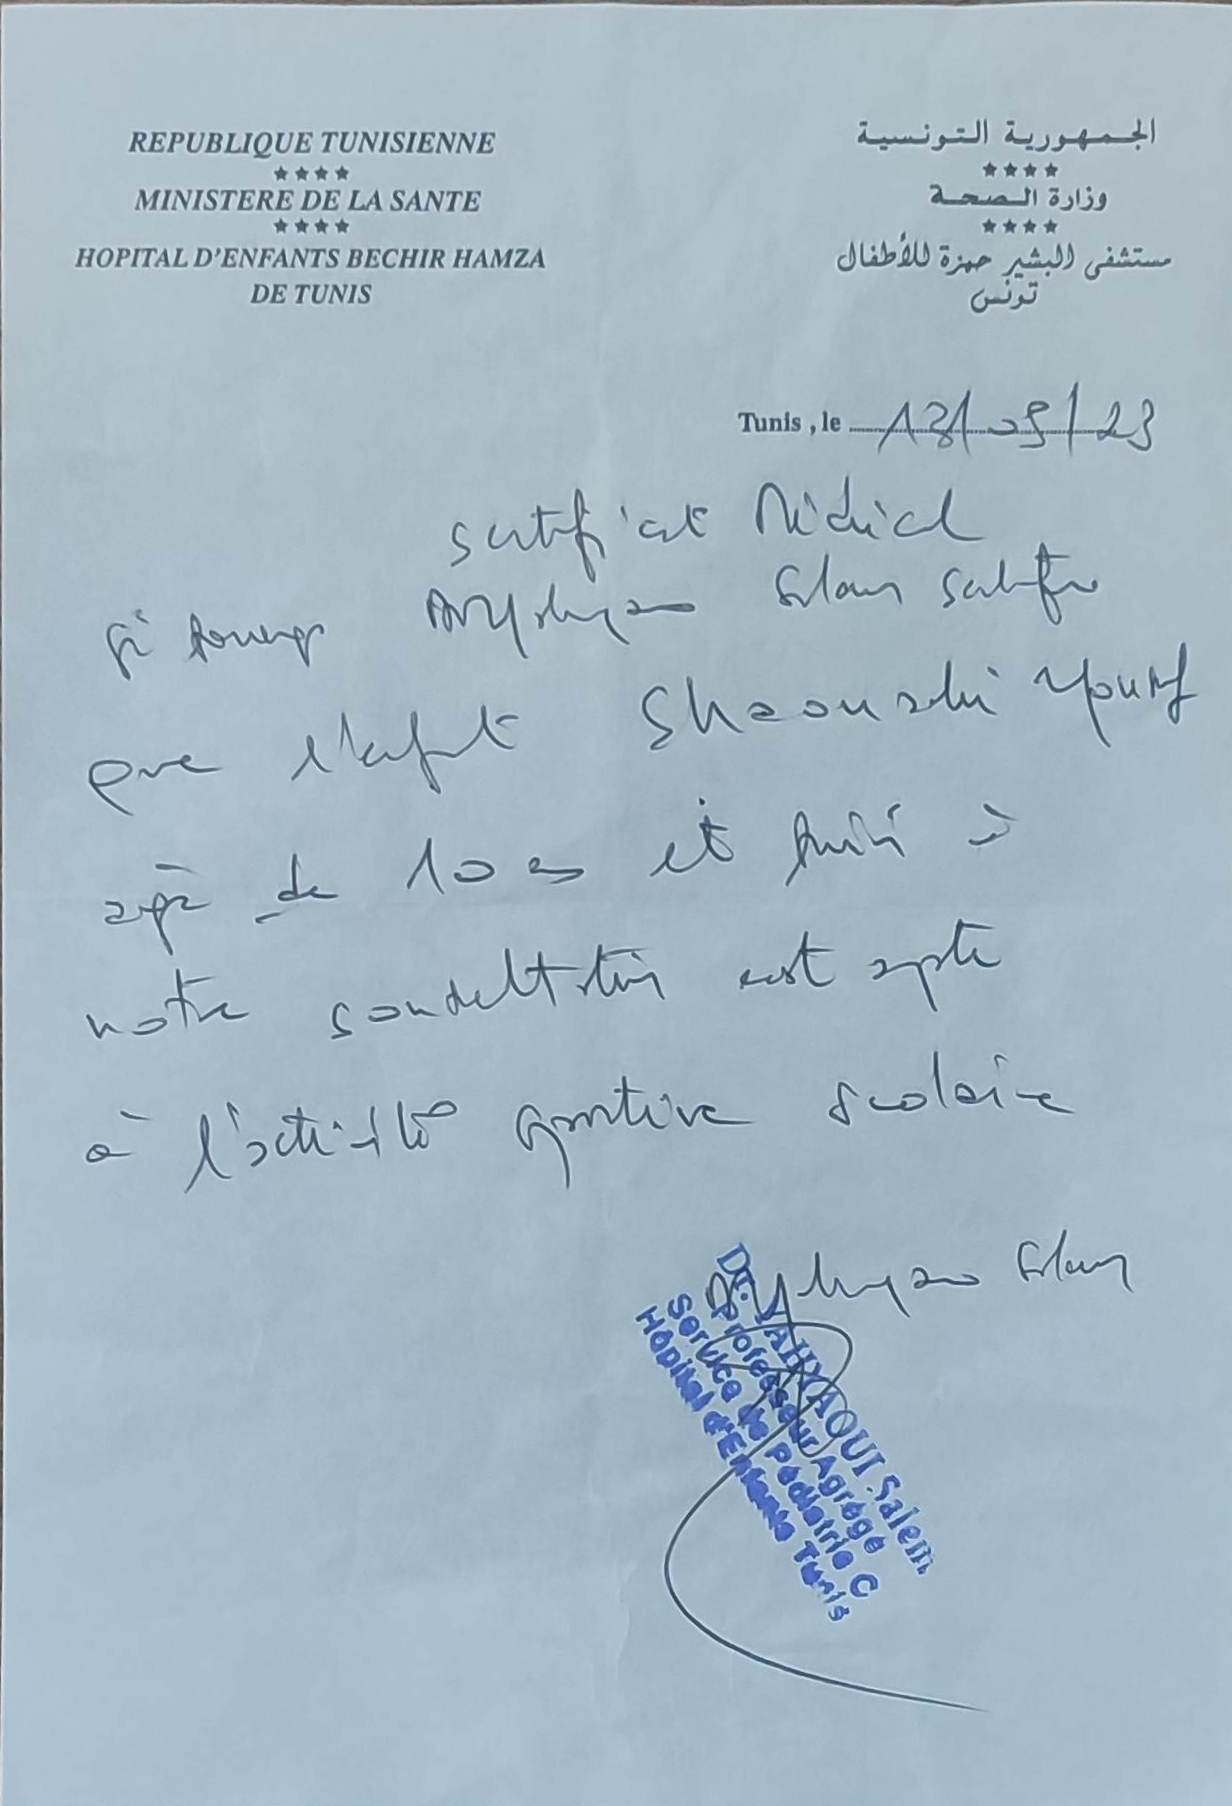 REPUBLIQUE TUNISIENNE
★★★★
MINISTERE DE LA SANTE
★★★★
HOPITAL D'ENFANTS BECHIR HAMZA
DE TUNIS
الجمهورية التونسية
★★★★
وزارة الصحة
★★★★
مستشفى البشير حمزة للأطفال
تونس
Tunis, le 13/09/23
Certificat Médical
que l'enfant Yousf
âgé de 10 ans et suivi à
notre consultation est apte
à l'activité sportive scolaire
Dr. YAHYAOUI Salem
Professeur Agrégé
Service de Pédiatrie C
Hôpital d'Enfants Tunis